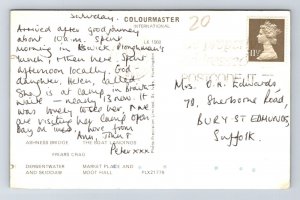 Saturday.
COLOURMASTER
INTERNATIONAL
20
LK 1302
Arrived after good journey
about 10 a.m. Spent
morning in Keswick. Ploughman's
lunch, & then here. Spent
afternoon locally. God-
daughter, Helen, filled
She is at camp, in Braith-
waite - nearly 13 now. It
was lovely to see her. We
are visiting her camp open
day on Wed. Love from
Ann, John &
Peter xxx
11½P
POSTCODE IT
Mrs. D. H. Edwards
70, Sherborne Road,
BURY ST EDMUNDS,
Suffolk.
ASHNESS BRIDGE
THE BOAT LANDINGS
FRIARS CRAG
DERWENTWATER
AND SKIDDAW
MARKET PLACE AND
MOOT HALL
PLX21778